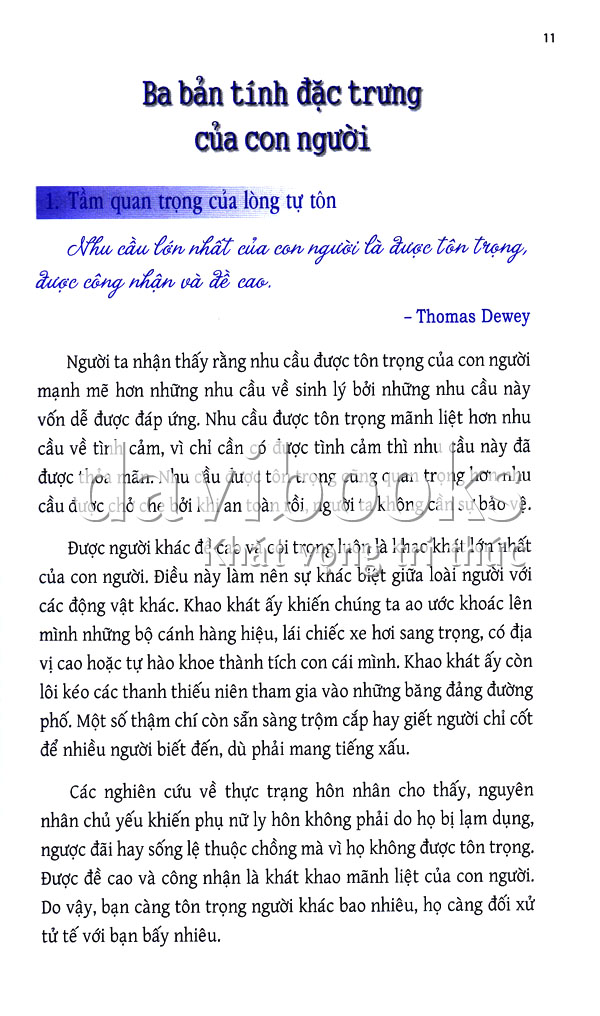 11
Ba bản tính đặc trưng
của con người
1. Tầm quan trọng của lòng tự tôn
Nhu cầu lớn nhất của con người là được tôn trọng,
được công nhận và đề cao.
– Thomas Dewey
Người ta nhận thấy rằng nhu cầu được tôn trọng của con người
mạnh mẽ hơn những nhu cầu về sinh lý bởi những nhu cầu này
vốn dễ được đáp ứng. Nhu cầu được tôn trọng mãnh liệt hơn nhu
cầu về tình cảm, vì chỉ cần có được tình cảm thì nhu cầu này đã
được thỏa mãn. Nhu cầu được tôn trọng cũng quan trọng hơn nhu
cầu được chở che bởi khi an toàn rồi, người ta không cần sự bảo vệ.
davibooks
Khát vọng tri thức
Được người khác đề cao và coi trọng luôn là khao khát lớn nhất
của con người. Điều này làm nên sự khác biệt giữa loài người với
các động vật khác. Khao khát ấy khiến chúng ta ao ước khoác lên
mình những bộ cánh hàng hiệu, lái chiếc xe hơi sang trọng, có địa
vị cao hoặc tự hào khoe thành tích con cái mình. Khao khát ấy còn
lôi kéo các thanh thiếu niên tham gia vào những băng đảng đường
phố. Một số thậm chí còn sẵn sàng trộm cắp hay giết người chỉ cốt
để nhiều người biết đến, dù phải mang tiếng xấu.
Các nghiên cứu về thực trạng hôn nhân cho thấy, nguyên
nhân chủ yếu khiến phụ nữ ly hôn không phải do họ bị lạm dụng,
ngược đãi hay sống lệ thuộc chồng mà vì họ không được tôn trọng.
Được đề cao và công nhận là khát khao mãnh liệt của con người.
Do vậy, bạn càng tôn trọng người khác bao nhiêu, họ càng đối xử
tử tế với bạn bấy nhiêu.